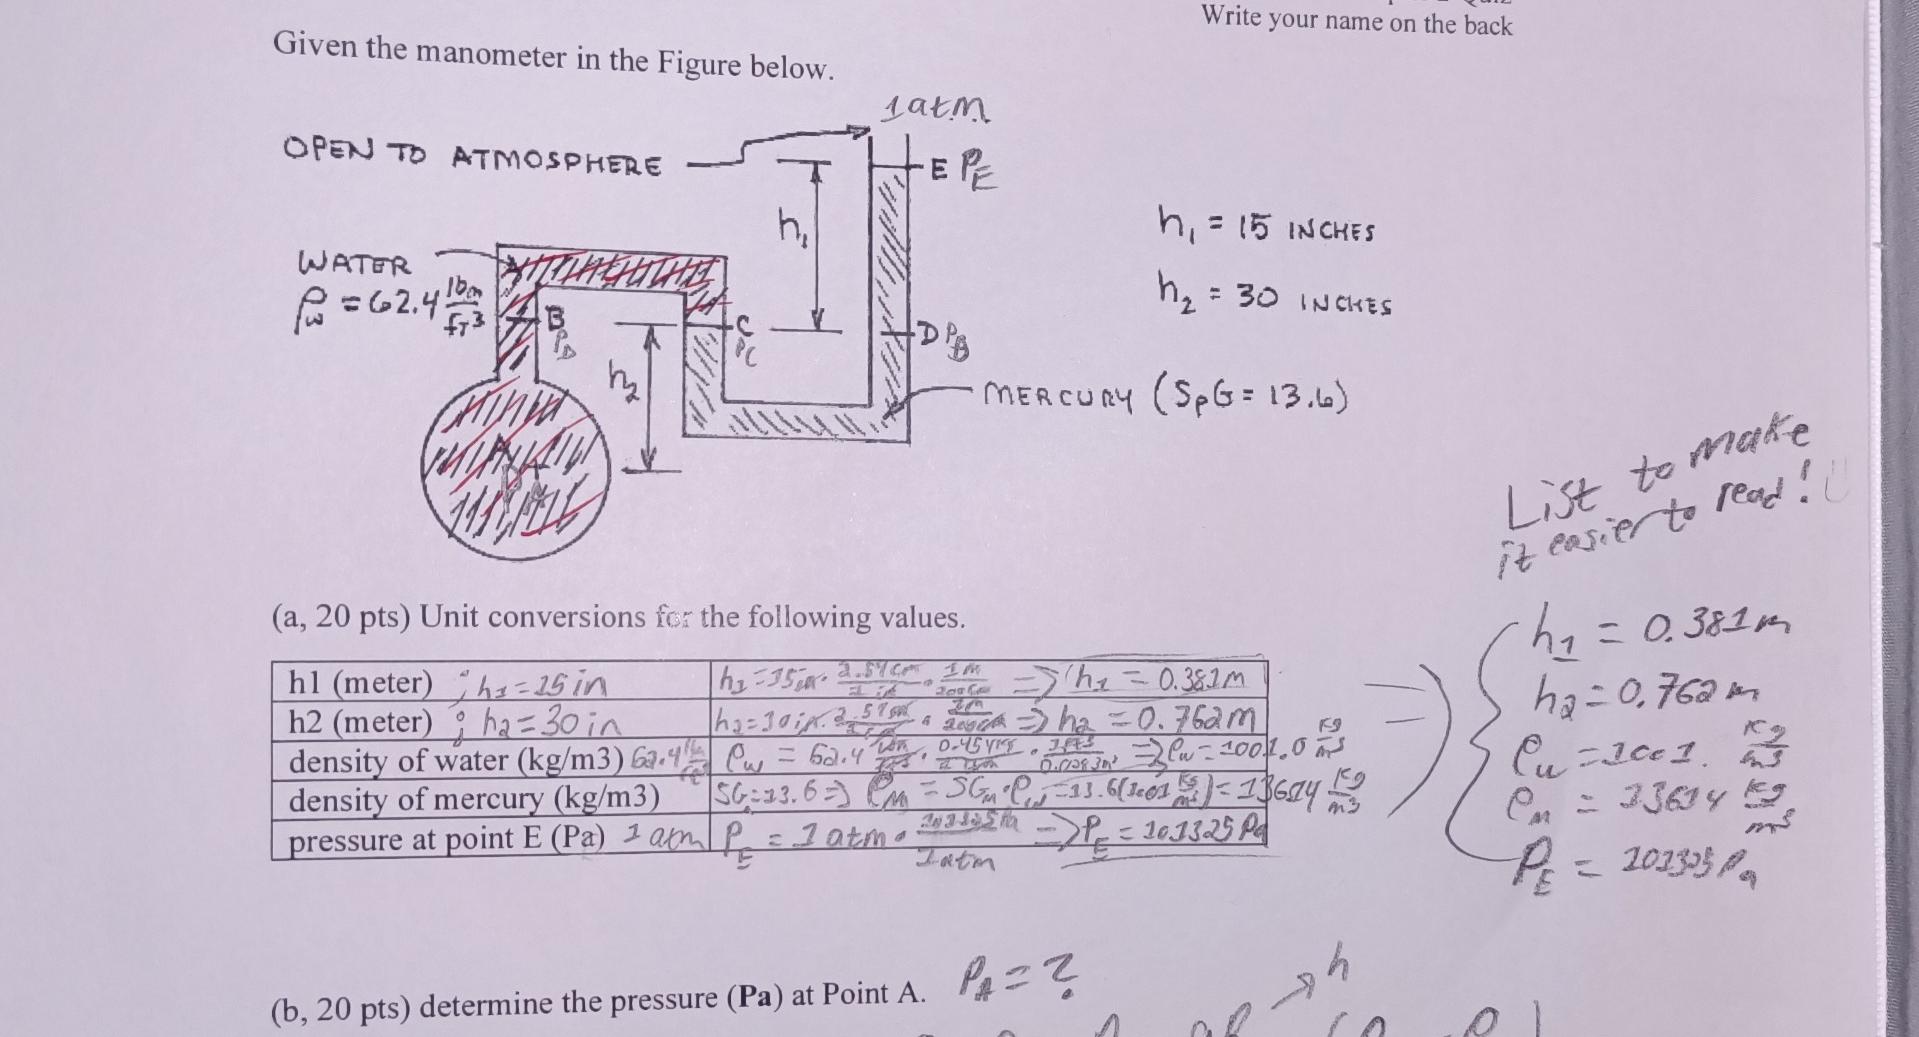 Write your name on the back
Given the manometer in the Figure below.
1 atm
OPEN TO ATMOSPHERE
E P_E
h₁
h₁ = 15 INCHES
WATER
ρ_w = 62.4 lbm/ft³
h₂ = 30 INCHES
B
C
P_C
D P_B
h₂
MERCURY (SpG = 13.6)
List to make
it easier to read!
(a, 20 pts) Unit conversions for the following values.
h1 (meter) ; h₁ = 15 in h₁ = 15 in · 2.54 cm / 1 in · 1 m / 100 cm ⇒ h₁ = 0.381 m
h2 (meter) ; h₂ = 30 in h₂ = 30 in · 2.54 cm / 1 in · 1 m / 100 cm ⇒ h₂ = 0.762 m
density of water (kg/m3) 62.4 ρ_w = 62.4 ⇒ ρ_w = 1001.0 kg/m³
density of mercury (kg/m3) SG = 13.6 ⇒ ρ_M = SG_m · ρ_w = 13.6 (1001 kg/m³) = 13614 kg/m³
pressure at point E (Pa) 1 atm P_E = 1 atm · 101325 Pa / 1 atm ⇒ P_E = 101325 Pa
h₁ = 0.381 m
h₂ = 0.762 m
ρ_w = 1001. kg/m³
ρ_m = 13614 kg/m³
P_E = 101325 Pa
(b, 20 pts) determine the pressure (Pa) at Point A. P_A = ?
h